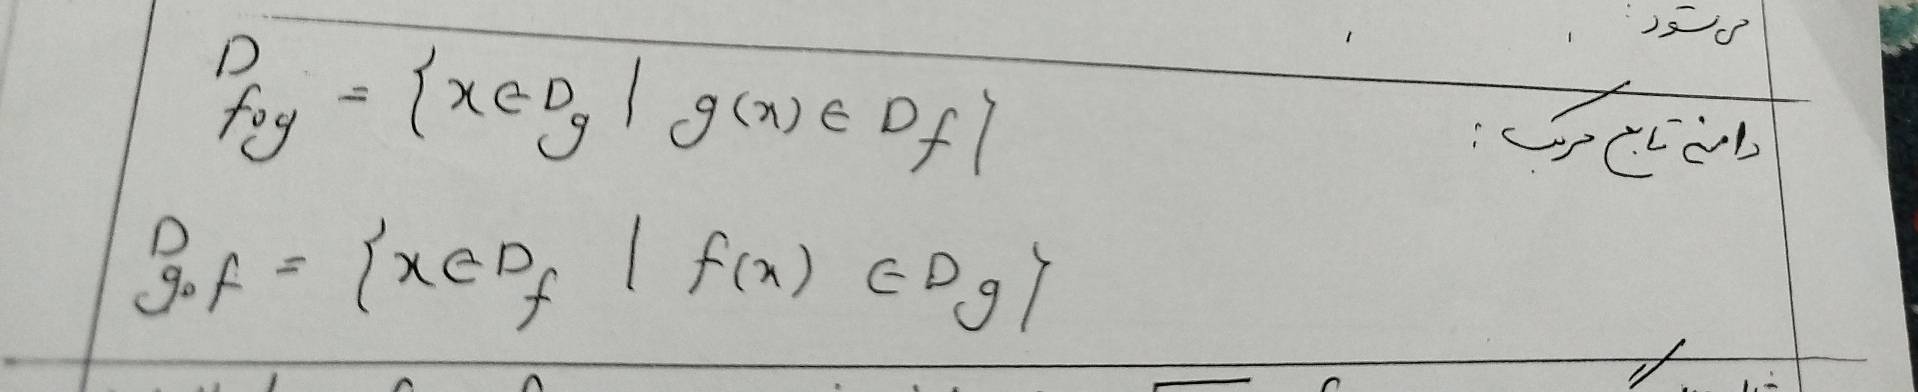 می‌شود:
دامنهٔ تابع مرکب:
D_{fog} = {x ∈ D_g | g(x) ∈ D_f}
D_{gof} = {x ∈ D_f | f(x) ∈ D_g}